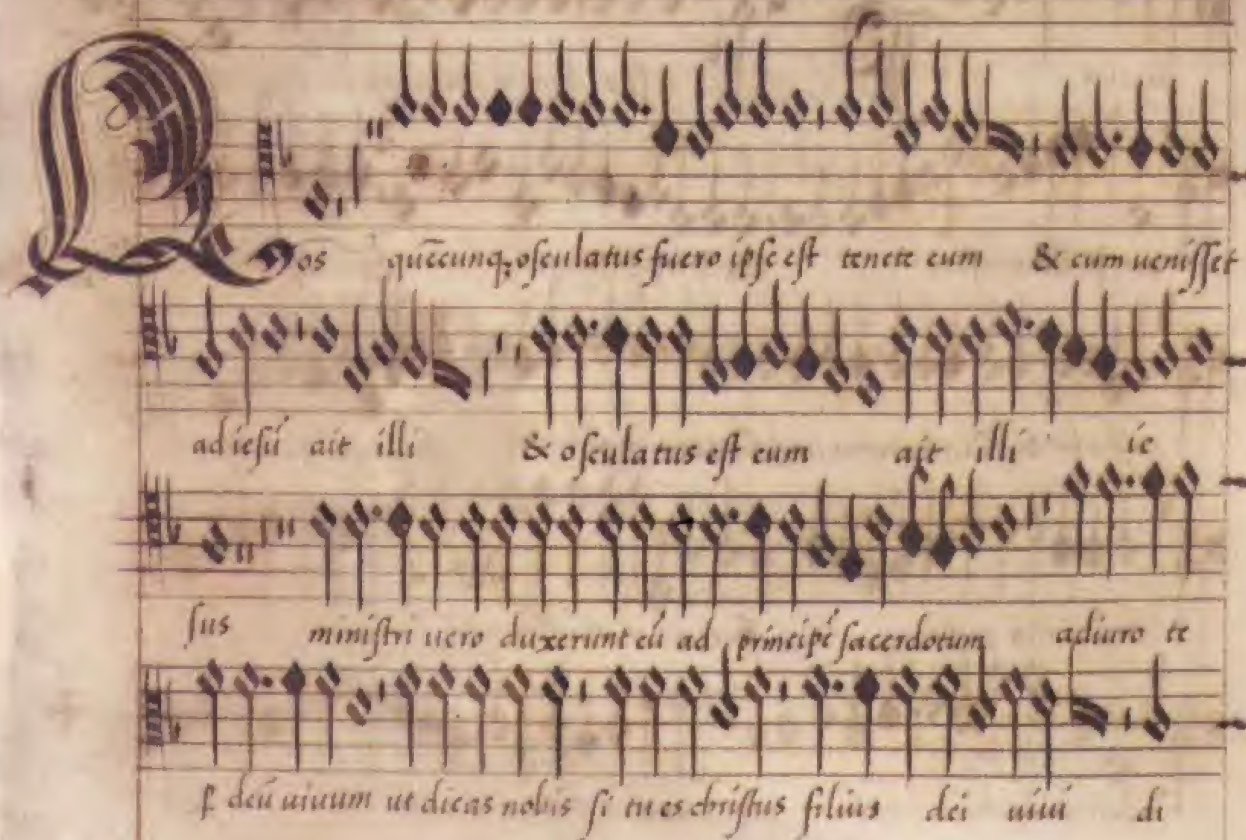 Nos quēcunq; osculatus fuero ipse est tenete eum & cum uenisset
ad iesū ait illi & osculatus est eum ait illi ie
sus ministri uero duxerunt eū ad principē sacerdotum adiuro te
p deū uiuum ut dicas nobis si tu es christus filius dei uiui di